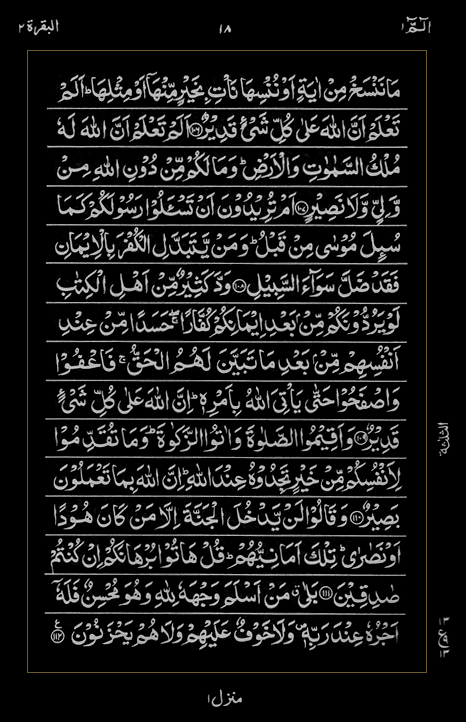 الٓمّٓ ١
١٨
البقرة ٢
مَا نَنْسَخْ مِنْ اٰيَةٍ اَوْ نُنْسِهَا نَاْتِ بِخَيْرٍ مِّنْهَاۤ اَوْ مِثْلِهَا ؕ اَلَمْ
تَعْلَمْ اَنَّ اللهَ عَلٰى كُلِّ شَىْءٍ قَدِيْرٌ ﴿۱۰۶﴾ اَلَمْ تَعْلَمْ اَنَّ اللهَ لَهٗ
مُلْكُ السَّمٰوٰتِ وَالْاَرْضِ ؕ وَمَا لَكُمْ مِّنْ دُوْنِ اللهِ مِنْ
وَّلِىٍّ وَّلَا نَصِيْرٍ ﴿۱۰۷﴾ اَمْ تُرِيْدُوْنَ اَنْ تَسْـَٔلُوْا رَسُوْلَكُمْ كَمَا
سُىِٕلَ مُوْسٰى مِنْ قَبْلُ ؕ وَمَنْ يَّتَبَدَّلِ الْكُفْرَ بِالْاِيْمَانِ
فَقَدْ ضَلَّ سَوَآءَ السَّبِيْلِ ﴿۱۰۸﴾ وَدَّ كَثِيْرٌ مِّنْ اَهْلِ الْكِتٰبِ
لَوْ يَرُدُّوْنَكُمْ مِّنْۢ بَعْدِ اِيْمَانِكُمْ كُفَّارًا ۖۚ حَسَدًا مِّنْ عِنْدِ
اَنْفُسِهِمْ مِّنْۢ بَعْدِ مَا تَبَيَّنَ لَهُمُ الْحَقُّ ۚ فَاعْفُوْا
وَاصْفَحُوْا حَتّٰى يَاْتِىَ اللهُ بِاَمْرِهٖ ؕ اِنَّ اللهَ عَلٰى كُلِّ شَىْءٍ
قَدِيْرٌ ﴿۱۰۹﴾ وَاَقِيْمُوا الصَّلٰوةَ وَاٰتُوا الزَّكٰوةَ ؕ وَمَا تُقَدِّمُوْا
لِاَنْفُسِكُمْ مِّنْ خَيْرٍ تَجِدُوْهُ عِنْدَ اللهِ ؕ اِنَّ اللهَ بِمَا تَعْمَلُوْنَ
بَصِيْرٌ ﴿۱۱۰﴾ وَقَالُوْا لَنْ يَّدْخُلَ الْجَنَّةَ اِلَّا مَنْ كَانَ هُوْدًا
اَوْ نَصٰرٰى ؕ تِلْكَ اَمَانِيُّهُمْ ؕ قُلْ هَاتُوْا بُرْهَانَكُمْ اِنْ كُنْتُمْ
صٰدِقِيْنَ ﴿۱۱۱﴾ بَلٰى ۚ مَنْ اَسْلَمَ وَجْهَهٗ لِلّٰهِ وَهُوَ مُحْسِنٌ فَلَهٗۤ
اَجْرُهٗ عِنْدَ رَبِّهٖ ۪ وَلَا خَوْفٌ عَلَيْهِمْ وَلَا هُمْ يَحْزَنُوْنَ ﴿۱۱۲﴾ ع
الثلثة
ع
منزل ١